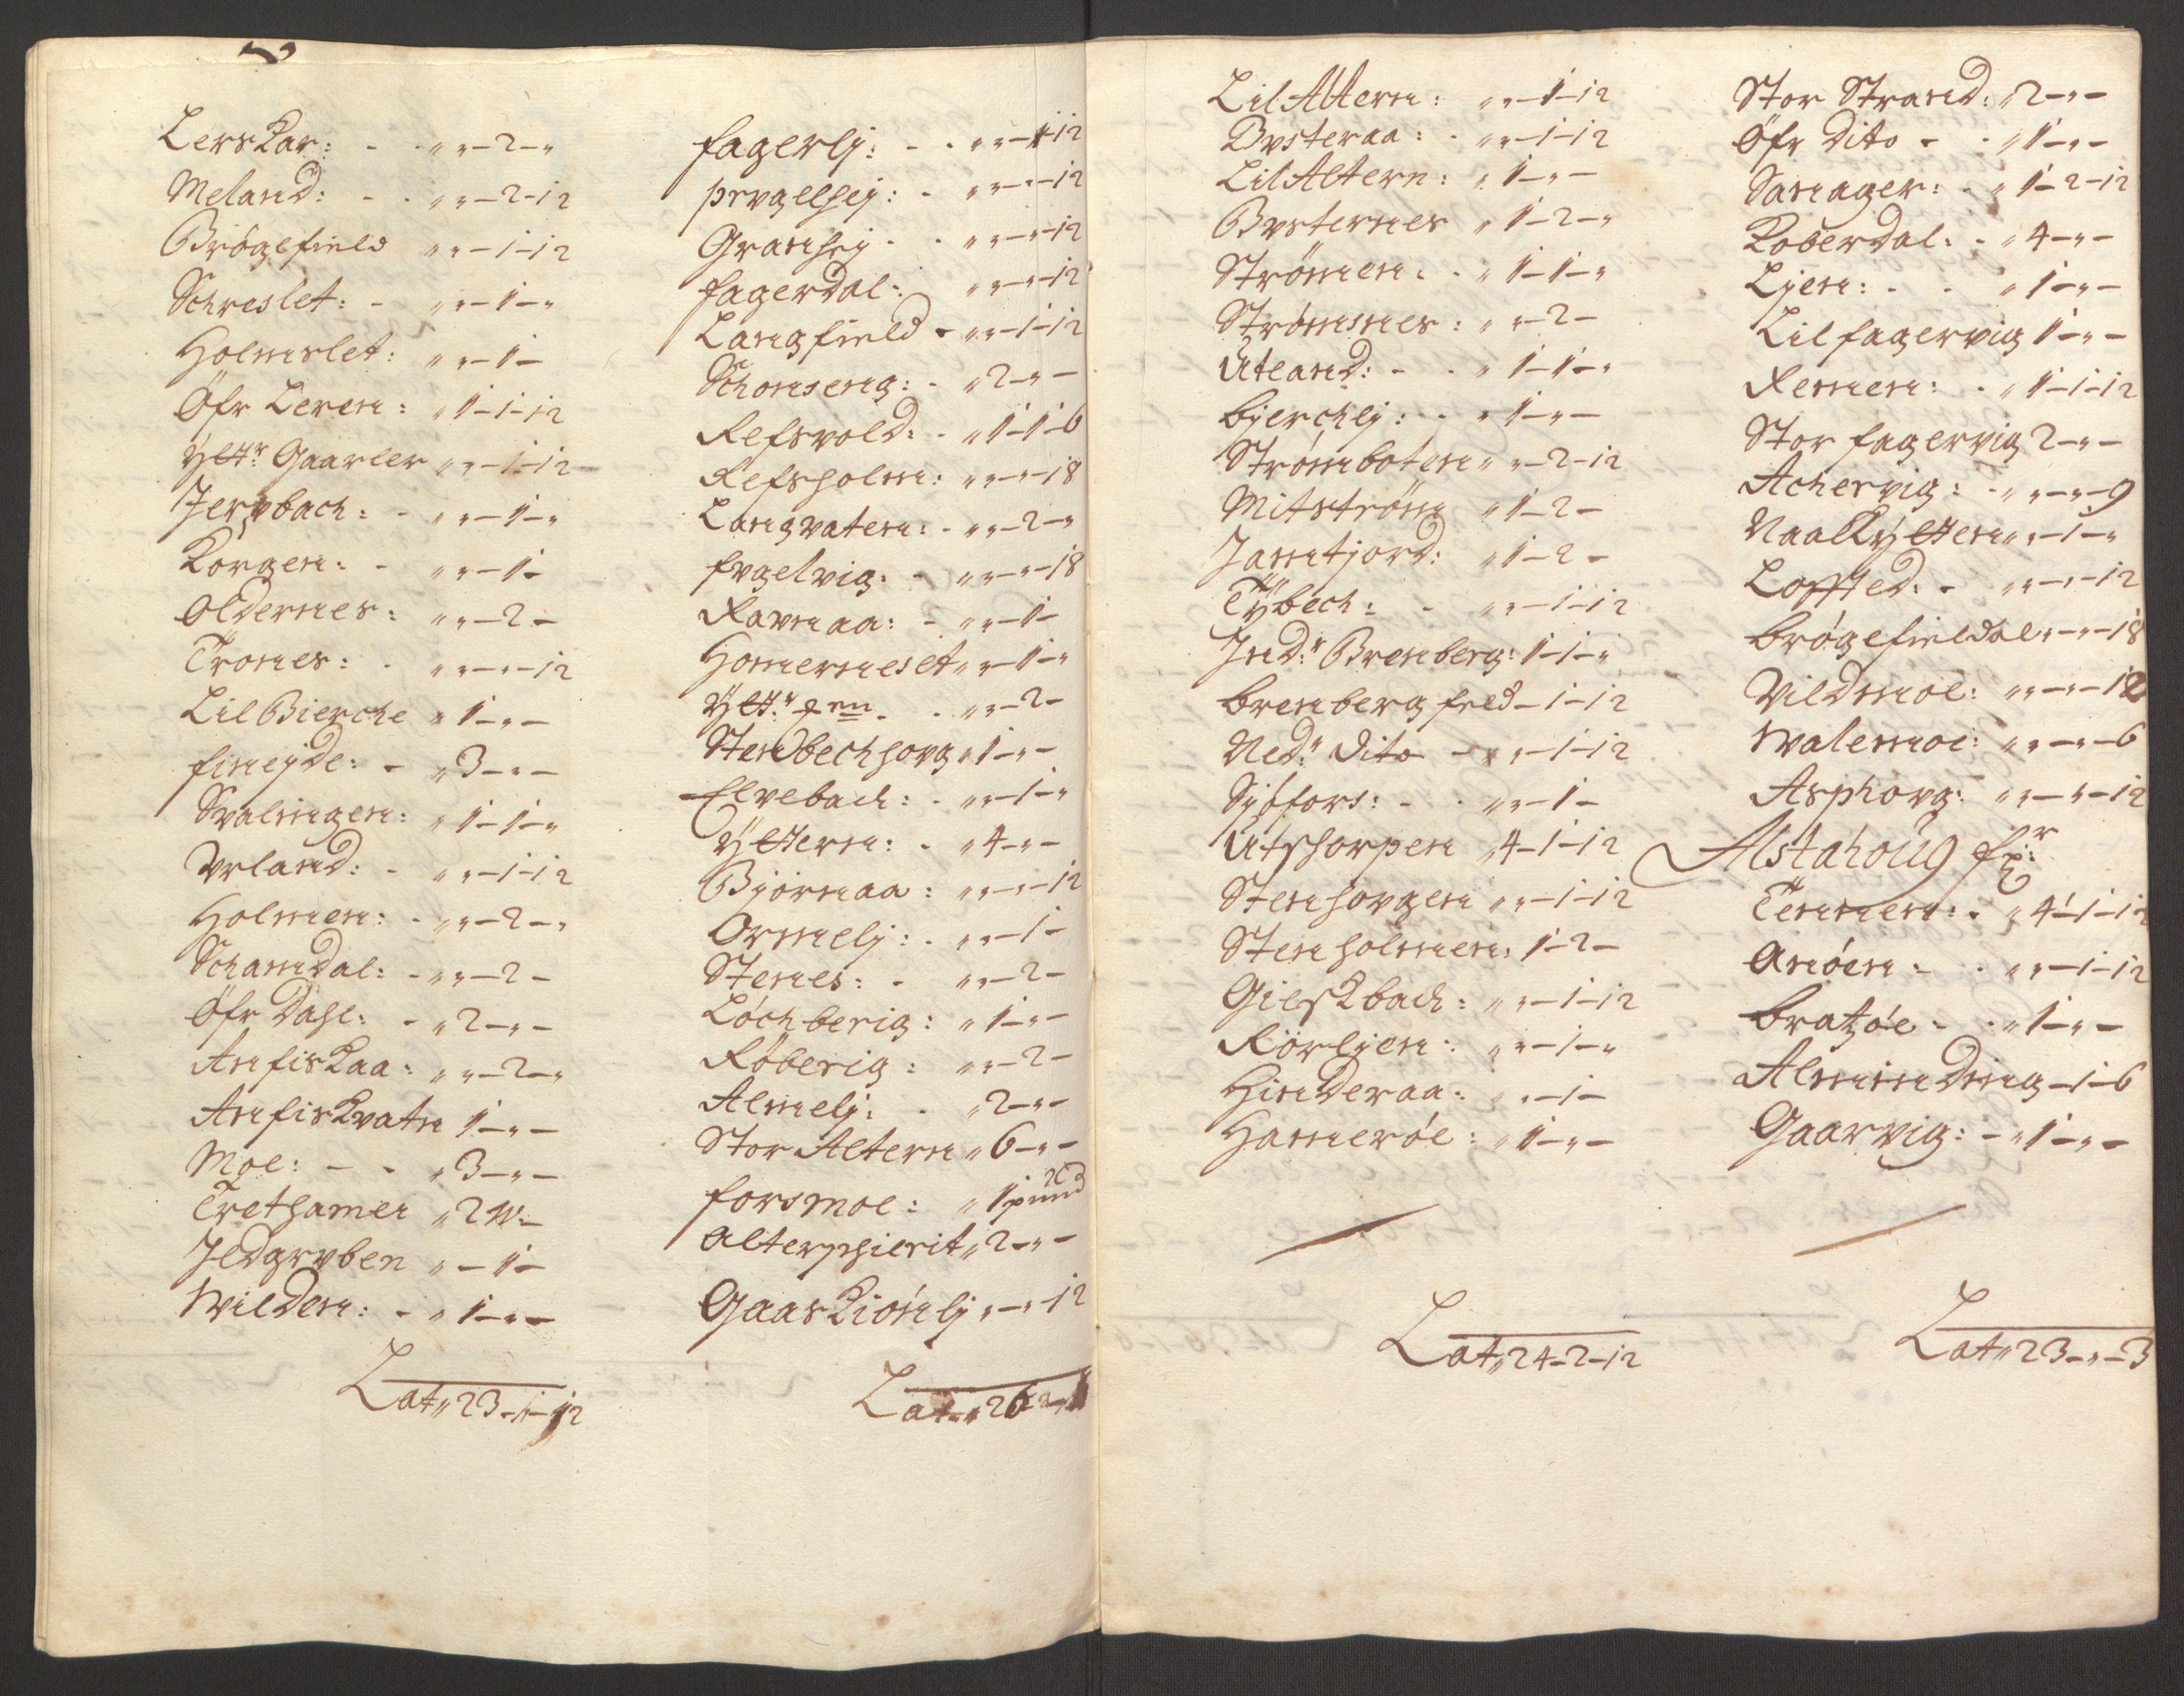 Lerskar: - - „ „ - 2 - „
Meland: - - „ „ - 2 - 12
Brøgelfield „ „ - 1 - 12
Schreslet: - „ „ - 1 - „
Holmslet: „ „ - 1 -
Öfr Leren: „ 1 - 1 - 12
Ÿttr Gaarler „ „ - 1 - 12
Jervbach: - „ „ - 1 - „
Korgen: - „ „ - 1 -
Oldernes: „ „ - 2 -
Trones: - „ „ - „ - 12
Lil Bierche „ 1 - „ -
fineyde: - „ 3 - „ -
Svalningen: „ 1 - 1 - „
Urland: - „ „ - 1 - 12
Holmen: - „ „ - 2 - „
Schamdal: - „ „ - 2 -
Öfr Dahl: - „ 2 - „ -
Anfiskaa: „ „ - 2 - „
Anfiskvatn 1 - „ -
Moe: - - „ 3 - „ -
Trethamer „ 2 W: -
Jldgruben „ - 1 -
Wilden: - „ 1 - „ -
Lat „ 23 - 1 - 12
fagerlj: - - „ „ - 1 - 12
prugelhej: - „ „ - „ - 12
Granhej - - „ „ - „ - 12
fagerdal: „ „ - „ - 12
Langfield - „ „ - 1 - 12
Schonseng: - „ 2 - „ -
Refsvold: - „ 1 - 1 - 6
Refsholm: „ „ - „ - 18
Langvaten: - „ „ - 2 - „
fugelvig: - „ „ - „ - 18
Ravnaa: - „ „ - 1 -
Homerneset „ „ - 1 - „
Ÿttr - - „ „ - 2 -
Stenbechhoug „ 1 - „ -
Elvebach: - „ „ - 1 - „
Ÿttern: - „ 4 - „ -
Bjørnaa: „ „ - „ - 12
Ormelj: - „ „ - 1 -
Stenes: - „ „ - 2 -
Løchberig: „ 1 - „ -
Røberig: „ „ - 2 -
Almelj: - „ 2 - „ -
Stor Altern „ 6 - „ -
forsmoe: „ 1 pund
Alterphierit „ 2 - „ -
Gaaskiönlj „ - „ - 12
Lat „ 26
Lil Altern: „ „ - 1 - 12
Busteraa: - „ „ - 1 - 12
Lil Altern: „ 1 - „ -
Busternes „ 1 - 2 - „
Strömen: - „ 1 - 1 - „
Strømsnes: „ „ - 2 -
Utland: - - „ 1 - 1 - „
bjerchlj: - „ 1 - „ -
Strømboten „ „ - 2 - 12
Mitström „ 1 - 2 -
Jamtjord: „ 1 - 2 -
Tÿbech: - „ „ - 1 - 12
Jnd:r Brenberg: 1 - 1 - „
brenberg field - 1 - 12
Ned:r Dito - „ „ - 1 - 12
Sjøfors: - - „ „ - 1 -
Utschorpen „ 4 - 1 - 12
Stenhougen „ „ - 1 - 12
Stenholmen: 1 - 2 -
Gieskbach: „ „ - 1 - 12
Rörljen: „ „ - 1 - „
Hinderaa: „ „ - 1 -
Hamerøe: „ 1 - „ -
Lat „ 24 - 2 - 12
Stor Strand: „ 2 - „ -
Öfr Dito - - „ 1 - „ -
Sanager: - „ 1 - 2 - 12
Koberdal: - „ 4 - „ -
Ljen: - - „ 1 - „ -
Lil fagervig 1 - „ -
Remen: - „ 1 - 1 - 12
Stor fagervig 2 - „ -
Achervig: - „ „ - „ - 9
Naalkÿtten „ „ - 1 - „
Lofsted: - „ „ - „ - 12
brøgefieldal „ - „ - 18
Vildmoe: „ „ - „ - 12
Walemoe: „ „ - „ - 6
Asphoug: „ „ - „ - 12
Alstahoug fr:
Temmen: - „ 4 - 1 - 12
Anøen: - - „ „ - 1 - 12
bratzøe - - „ 1 - „ -
Alminding - 1 - 6
Gaarvig: - „ 1 - „ -
Lat „ 23 - „ - 3